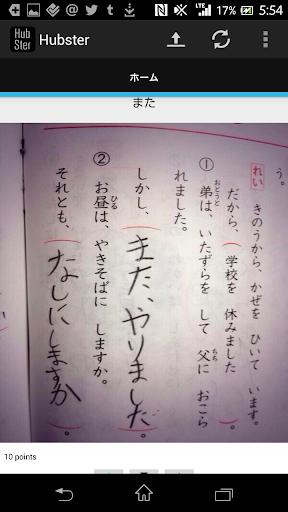 17% 5:54
Hub
Ster
Hubster
ホーム
また
う。
れい きのうから、かぜを ひいて います。
だから、(学校を 休みました)。
① 弟は、いたずらを して 父に おこら
おとうと
ちち
れました。
しかし、(また、やりました)。
② お昼は、やきそばに しますか。
ひる
それとも、(なしにしますか)。
10 points